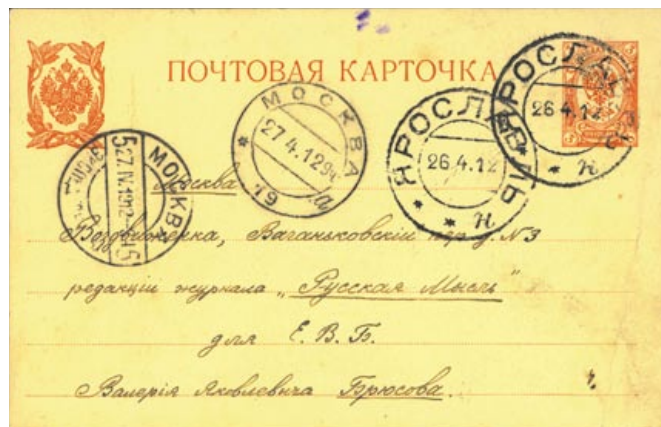 ПОЧТОВАЯ КАРТОЧКА
ЯРОСЛАВЛЬ
26.4.12
н
ЯРОСЛАВЛЬ
26.4.12
н
МОСКВА
27.4.12
19
а
МОСКВА
27.IV.1912
Москва
Воздвиженка, Ваганьковскій пер. д. №3
редакціи журнала „Русская Мысль"
для Е. В. Б.
Валерія Яковлевича Брюсова.